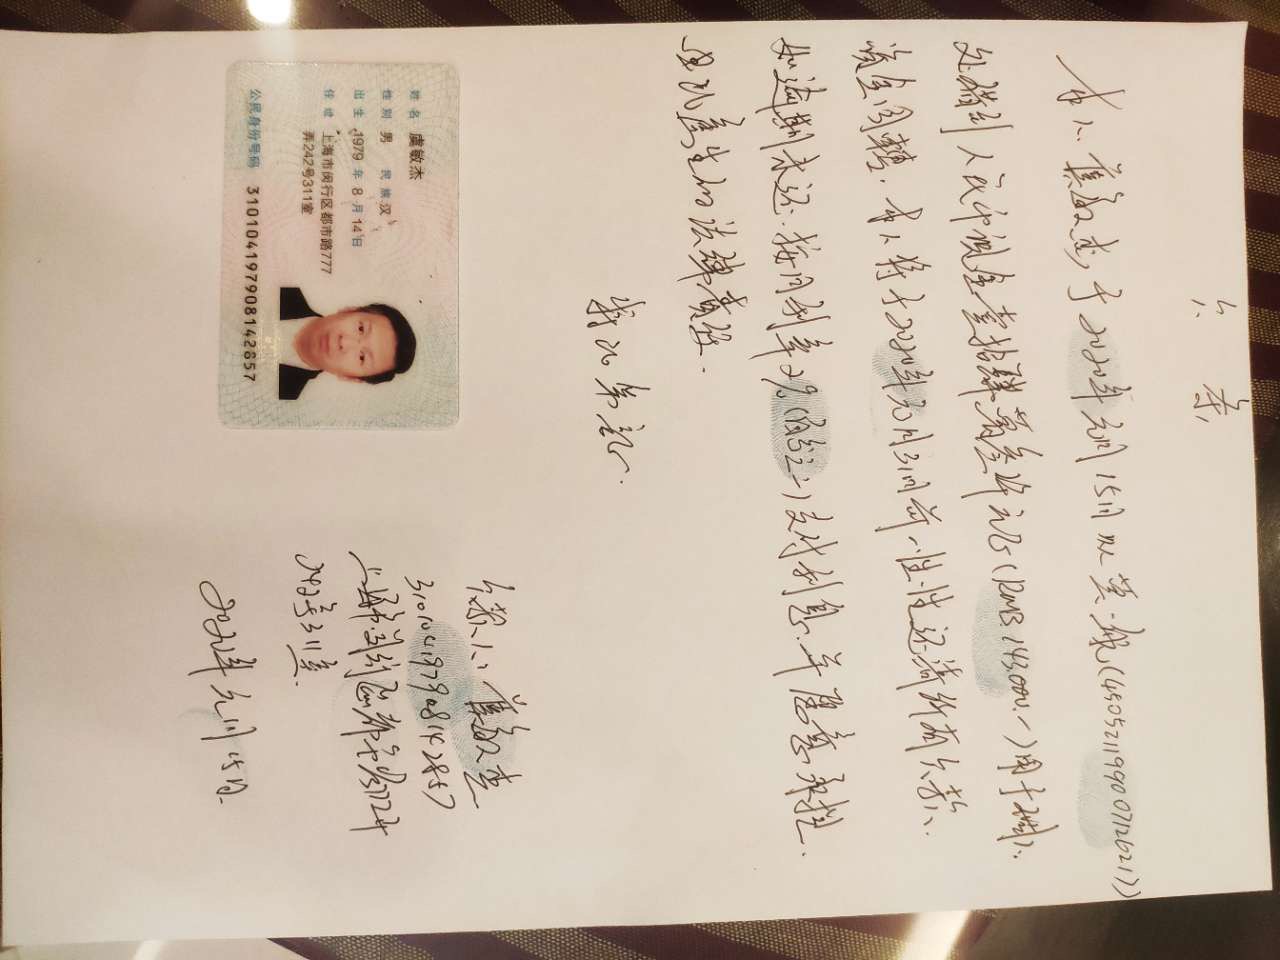 欠条
本人虞敏杰，于2020年元月15日从莫靓(450521199007126211)
处借到人民币现金壹拾肆萬叁仟元(RMB 143,000-)用于个人
资金周转，本人将于2020年10月31日前一次性还清所有欠款.
如逾期未还.按月利率2%(百分之二)支付利息.并愿意承担
由此产生的法律责任.
特此为证.
欠款人:虞敏杰
310104197908142857
上海市闵行区都市路777弄
242号311室.
2020年元月15日.
姓名 虞敏杰
性别 男 民族 汉
出生 1979年8月14日
住址 上海市闵行区都市路777
弄242号311室
公民身份号码 310104197908142857